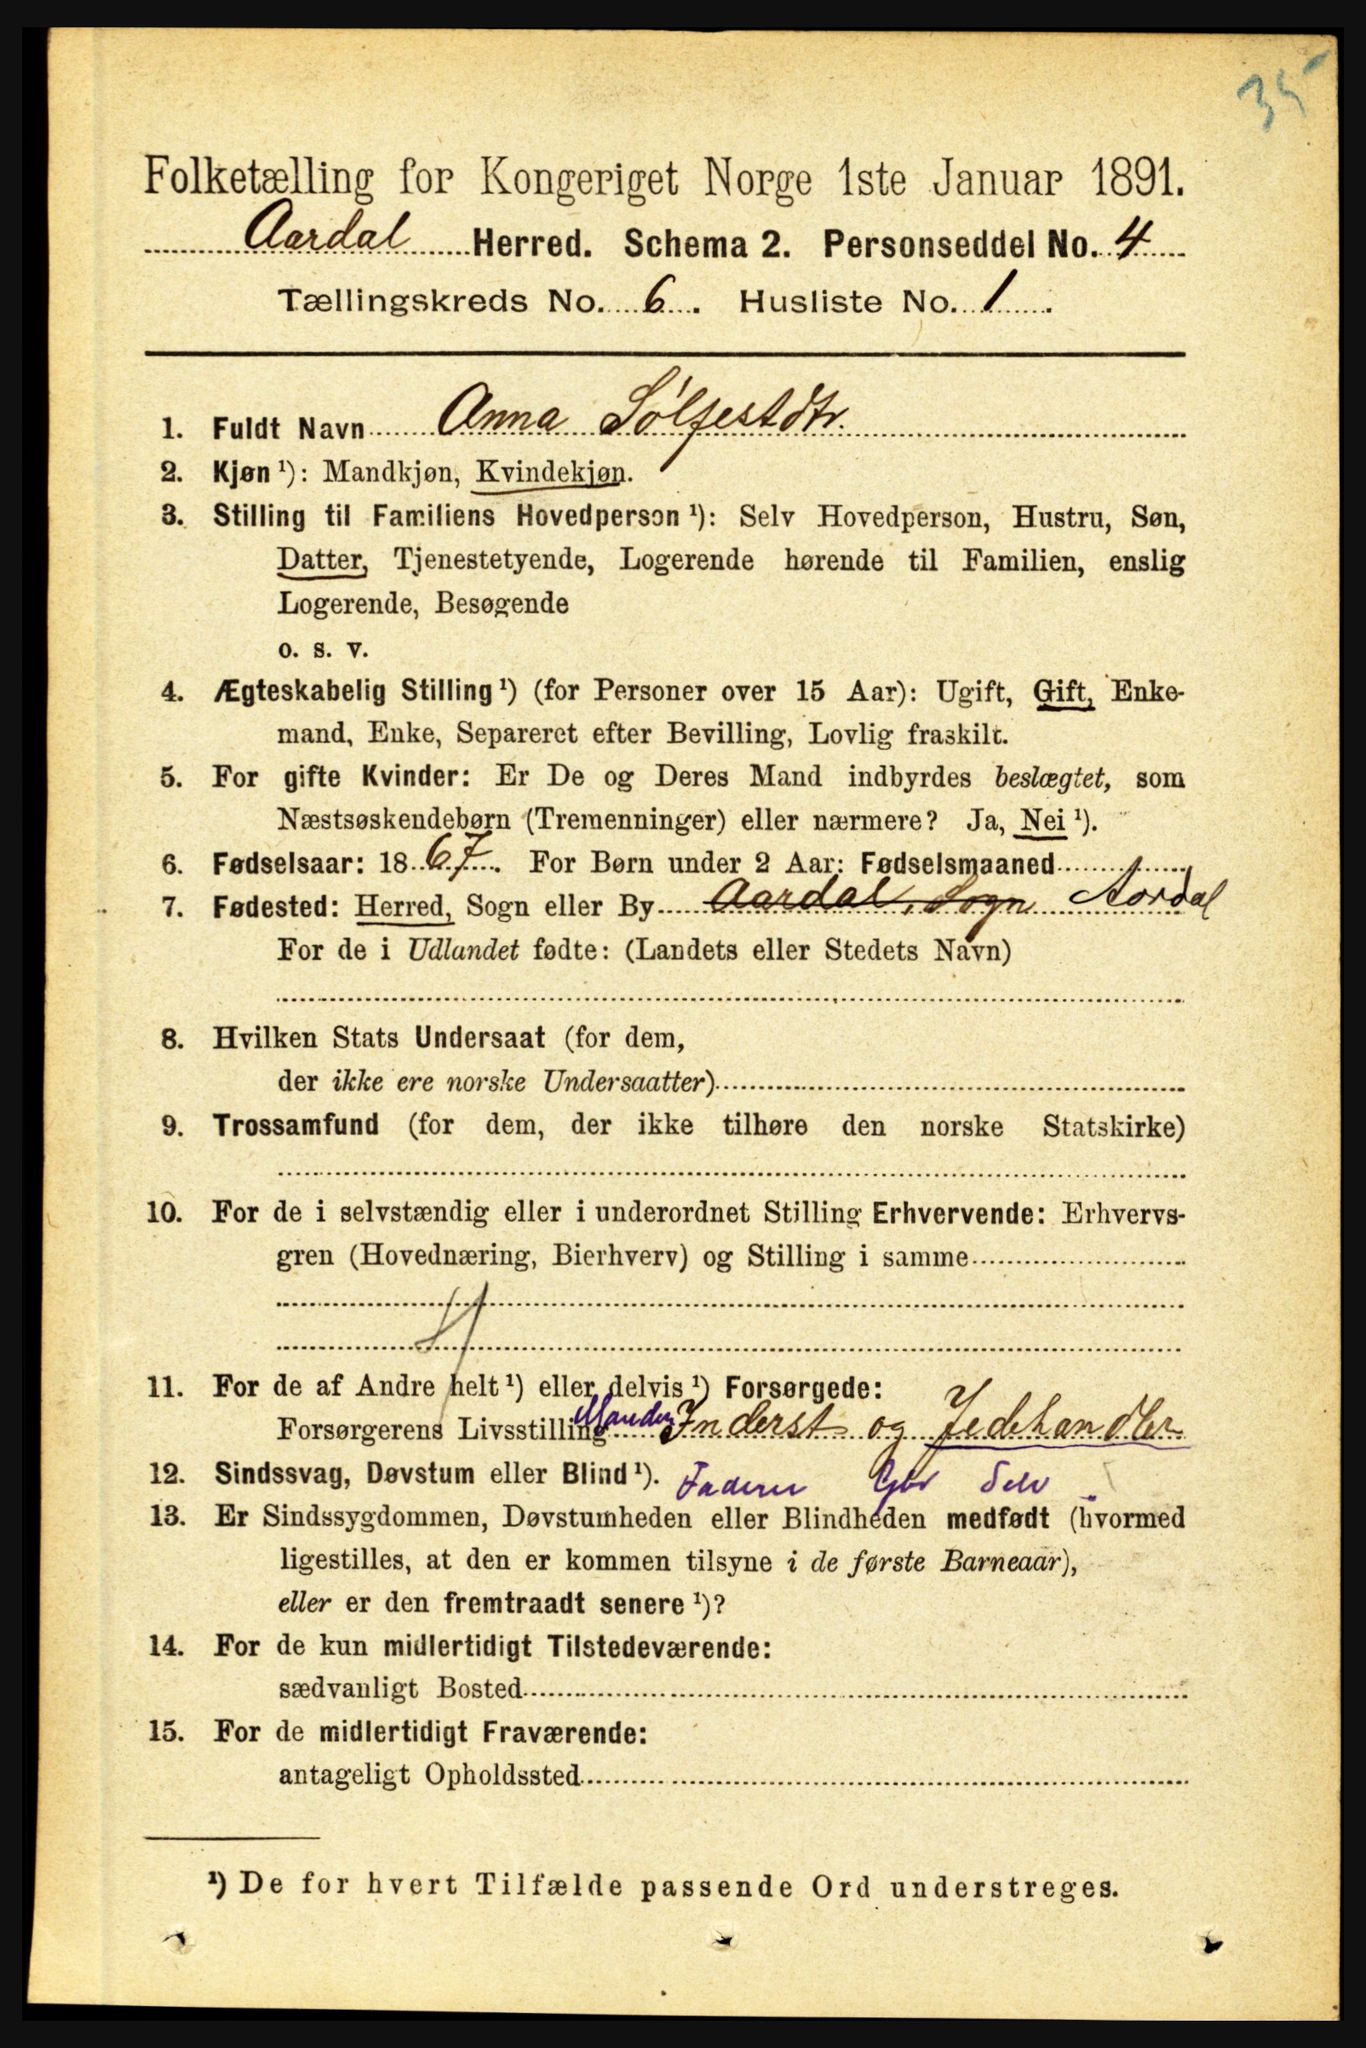 35
Folketælling for Kongeriget Norge 1ste Januar 1891.
Aardal Herred. Schema 2. Personseddel No. 4
Tællingskreds No. 6. Husliste No. 1.
1. Fuldt Navn Anna Sølfestdtr.
2. Kjøn ¹): Mandkjøn, Kvindekjøn.
3. Stilling til Familiens Hovedperson ¹): Selv Hovedperson, Hustru, Søn,
Datter, Tjenestetyende, Logerende hørende til Familien, enslig
Logerende, Besøgende
o. s. v.
4. Ægteskabelig Stilling ¹) (for Personer over 15 Aar): Ugift, Gift, Enke-
mand, Enke, Separeret efter Bevilling, Lovlig fraskilt.
5. For gifte Kvinder: Er De og Deres Mand indbyrdes beslægtet, som
Næstsøskendebørn (Tremenninger) eller nærmere? Ja, Nei ¹).
6. Fødselsaar: 1867. For Børn under 2 Aar: Fødselsmaaned
7. Fødested: Herred, Sogn eller By Aardal, Sogn Aardal
For de i Udlandet fødte: (Landets eller Stedets Navn)
8. Hvilken Stats Undersaat (for dem,
der ikke ere norske Undersaatter)
9. Trossamfund (for dem, der ikke tilhøre den norske Statskirke)
10. For de i selvstændig eller i underordnet Stilling Erhvervende: Erhvervs-
gren (Hovednæring, Bierhverv) og Stilling i samme
11. For de af Andre helt ¹) eller delvis ¹) Forsørgede:
Forsørgerens Livsstilling Manden Inderst og Fedehandler
12. Sindssvag, Døvstum eller Blind ¹). Faderen Gbr Selv
13. Er Sindssygdommen, Døvstumheden eller Blindheden medfødt (hvormed
ligestilles, at den er kommen tilsyne i de første Barneaar),
eller er den fremtraadt senere ¹)?
14. For de kun midlertidigt Tilstedeværende:
sædvanligt Bosted
15. For de midlertidigt Fraværende:
antageligt Opholdssted
¹) De for hvert Tilfælde passende Ord understreges.